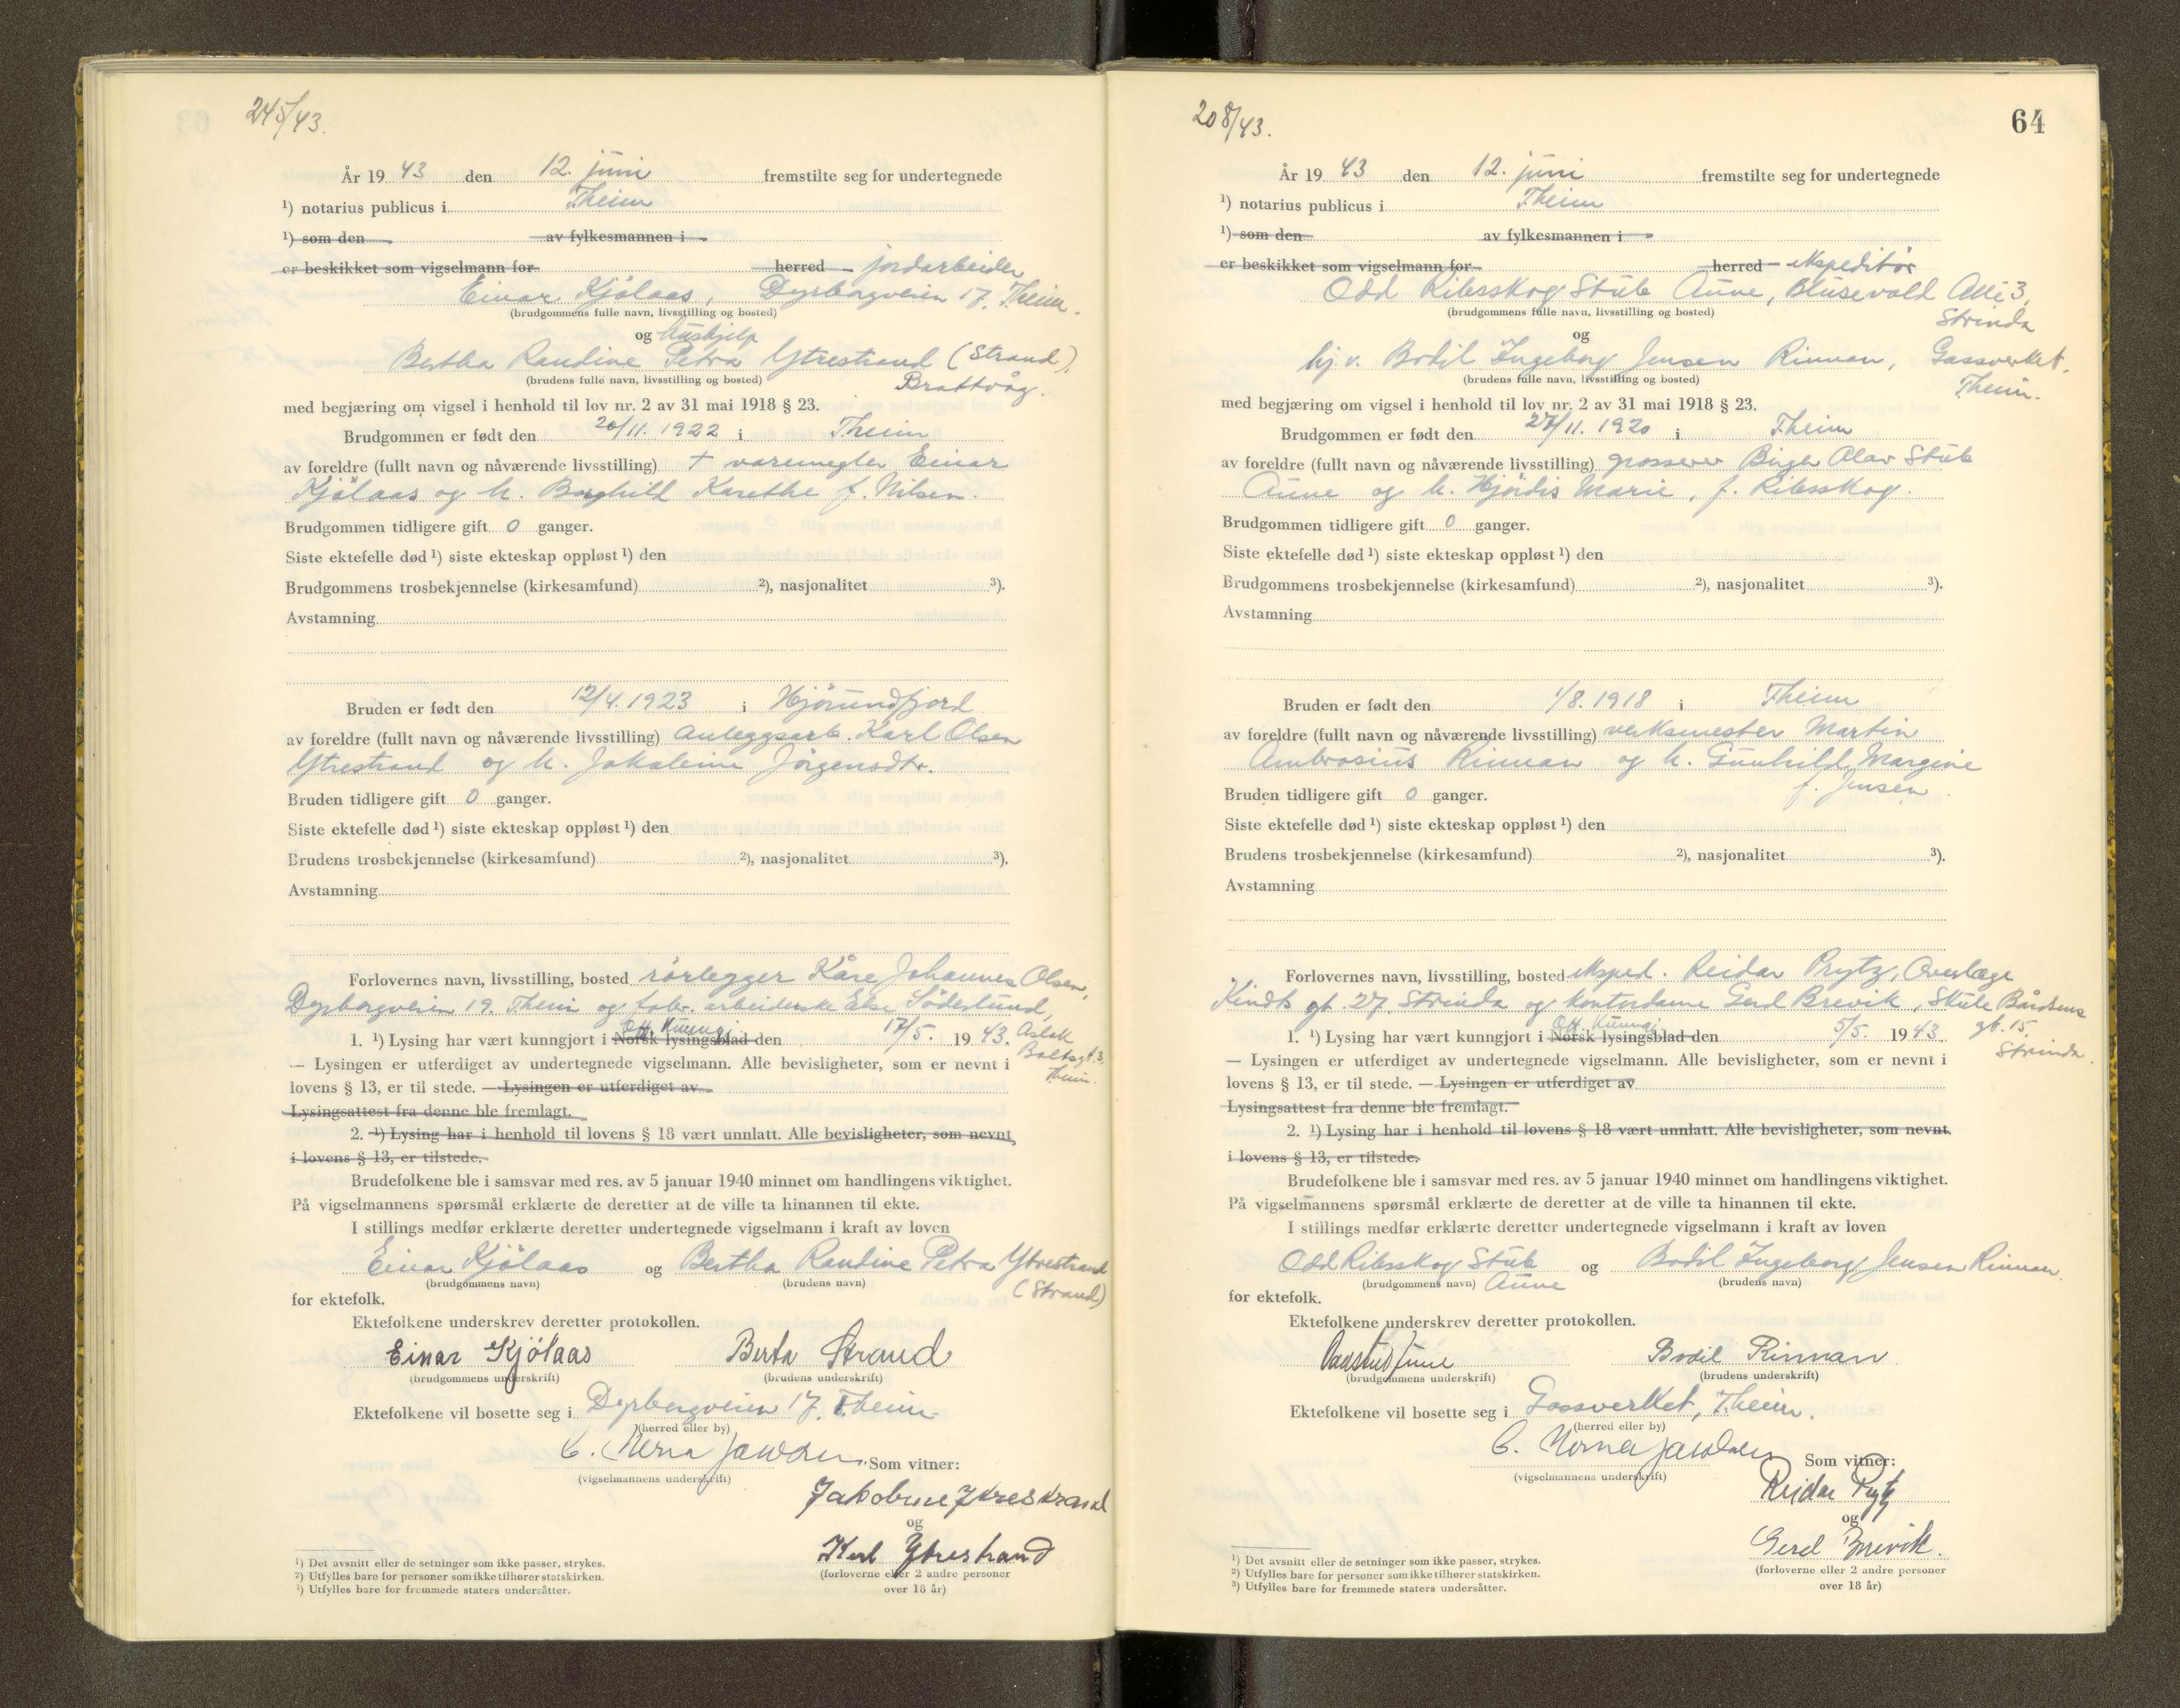 245/43.
År 19 43 den 12. juni fremstilte seg for undertegnede
¹) notarius publicus i Theim
¹) som den av fylkesmannen i
er beskikket som vigselmann for herred jordarbeider
Einar Kjölaas, Dyrborgveien 17, Theim.
(brudgommens fulle navn, livsstilling og bosted)
og hushjelp
Bertha Randine Petra Ytrestrand (Strand),
(brudens fulle navn, livsstilling og bosted) Brattvåg.
med begjæring om vigsel i henhold til lov nr. 2 av 31 mai 1918 § 23.
Brudgommen er født den 20/11. 1922 i Theim
av foreldre (fullt navn og nåværende livsstilling) + varemegler Einar
Kjölaas og h. Borghild Karethe f. Nilsen.
Brudgommen tidligere gift 0 ganger.
Siste ektefelle død ¹) siste ekteskap oppløst ¹) den
Brudgommens trosbekjennelse (kirkesamfund) ²), nasjonalitet ³).
Avstamning
Bruden er født den 12/4. 1923 i Hjörundfjord
av foreldre (fullt navn og nåværende livsstilling) anleggsarb. Karl Olsen
Ytrestrand og h. Jakobine Jörgensdtr.
Bruden tidligere gift 0 ganger.
Siste ektefelle død ¹) siste ekteskap oppløst ¹) den
Brudens trosbekjennelse (kirkesamfund) ²), nasjonalitet ³).
Avstamning
Forlovernes navn, livsstilling, bosted rörlegger Kåre Johannes Olsen,
Dyrborgveien 19, Theim og fabr. arbeiderske Else Söderlund,
Off. Kunngj.
1. ¹) Lysing har vært kunngjort i Norsk lysingsblad den 17/5. 19 43. Aslak
Boltsgt. 3,
Theim.
— Lysingen er utferdiget av undertegnede vigselmann. Alle bevisligheter, som er nevnt i
lovens § 13, er til stede. — Lysingen er utferdiget av
Lysingsattest fra denne ble fremlagt.
2. ¹) Lysing har i henhold til lovens § 18 vært unnlatt. Alle bevisligheter, som nevnt
i lovens § 13, er tilstede.
Brudefolkene ble i samsvar med res. av 5 januar 1940 minnet om handlingens viktighet.
På vigselmannens spørsmål erklærte de deretter at de ville ta hinannen til ekte.
I stillings medfør erklærte deretter undertegnede vigselmann i kraft av loven
Einar Kjölaas og Bertha Randine Petra Ytrestrand
(brudgommens navn) (brudens navn) (Strand)
for ektefolk.
Ektefolkene underskrev deretter protokollen.
Einar Kjölaas Berta Strand
(brudgommens underskrift) (brudens underskrift)
Ektefolkene vil bosette seg i Dyrborgveien 17, Theim.
(herred eller by)
Som vitner:
(vigselmannens underskrift)
Jakobine Ytrestrand
og
Karl Ytrestrand
(forloverne eller 2 andre personer
over 18 år)
¹) Det avsnitt eller de setninger som ikke passer, strykes.
²) Utfylles bare for personer som ikke tilhører statskirken.
³) Utfylles bare for fremmede staters undersåtter.
208/43.
64
År 19 43 den 12. juni fremstilte seg for undertegnede
¹) notarius publicus i Theim
¹) som den av fylkesmannen i
er beskikket som vigselmann for herred ekspeditör
Odd Ribsskog Stub Aune, Blusevold Allé 3,
(brudgommens fulle navn, livsstilling og bosted) Strinda
og
hj.v. Bodil Ingeborg Jensen Rinnan, Gassverket,
(brudens fulle navn, livsstilling og bosted) Theim.
med begjæring om vigsel i henhold til lov nr. 2 av 31 mai 1918 § 23.
Brudgommen er født den 27/11. 1920 i Theim
av foreldre (fullt navn og nåværende livsstilling) grosserer Birger Olav Stub
Aune og h. Hjördis Marie, f. Ribsskog.
Brudgommen tidligere gift 0 ganger.
Siste ektefelle død ¹) siste ekteskap oppløst ¹) den
Brudgommens trosbekjennelse (kirkesamfund) ²), nasjonalitet ³).
Avstamning
Bruden er født den 1/8. 1918 i Theim
av foreldre (fullt navn og nåværende livsstilling) verksmester Martin
Ambrosius Rinnan og h. Gunhild Margine
f. Jensen
Bruden tidligere gift 0 ganger.
Siste ektefelle død ¹) siste ekteskap oppløst ¹) den
Brudens trosbekjennelse (kirkesamfund) ²), nasjonalitet ³).
Avstamning
Forlovernes navn, livsstilling, bosted eksped. Reidar Prytz, Overlæge
Kindts gt. 27, Strinda og kontordame Gerd Brevik, Skule Bårdsens
gt. 15,
Strinda.
Off. Kunngj.
1. ¹) Lysing har vært kunngjort i Norsk lysingsblad den 5/5. 19 43.
— Lysingen er utferdiget av undertegnede vigselmann. Alle bevisligheter, som er nevnt i
lovens § 13, er til stede. — Lysingen er utferdiget av
Lysingsattest fra denne ble fremlagt.
2. ¹) Lysing har i henhold til lovens § 18 vært unnlatt. Alle bevisligheter, som nevnt
i lovens § 13, er tilstede.
Brudefolkene ble i samsvar med res. av 5 januar 1940 minnet om handlingens viktighet.
På vigselmannens spørsmål erklærte de deretter at de ville ta hinannen til ekte.
I stillings medfør erklærte deretter undertegnede vigselmann i kraft av loven
Odd Ribsskog Stub og Bodil Ingeborg Jensen Rinnan.
(brudgommens navn) Aune (brudens navn)
for ektefolk.
Ektefolkene underskrev deretter protokollen.
Bodil Rinnan
(brudgommens underskrift) (brudens underskrift)
Ektefolkene vil bosette seg i Gassverket, Theim.
(herred eller by)
Som vitner:
(vigselmannens underskrift)
Reidar Prytz
og
Gerd Brevik.
(forloverne eller 2 andre personer
over 18 år)
¹) Det avsnitt eller de setninger som ikke passer, strykes.
²) Utfylles bare for personer som ikke tilhører statskirken.
³) Utfylles bare for fremmede staters undersåtter.